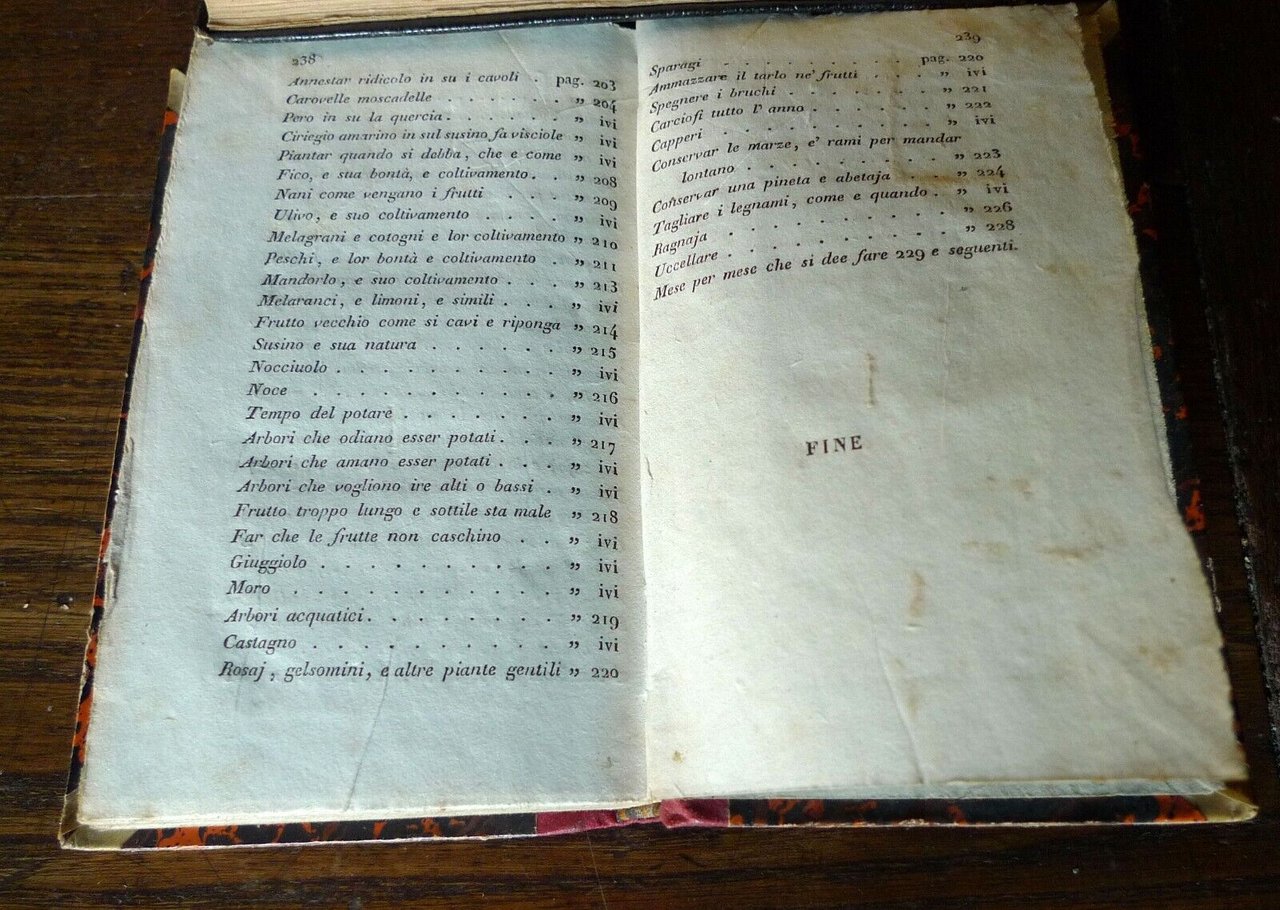 238
Annestar ridicolo in su i cavoli . pag. 203
Carovelle moscadelle . . . . . . „ 204
Pero in su la quercia . . . . . . „ ivi
Ciriegio amarino in sul susino fa visciole „ ivi
Piantar quando si debba, che e come „ ivi
Fico, e sua bontà, e coltivamento . . „ 208
Nani come vengano i frutti . . . „ 209
Ulivo, e suo coltivamento . . . . „ ivi
Melagrani e cotogni e lor coltivamento „ 210
Peschi, e lor bontà e coltivamento . „ 211
Mandorlo, e suo coltivamento . . . „ 213
Melaranci, e limoni, e simili . . . „ ivi
Frutto vecchio come si cavi e riponga „ 214
Susino e sua natura . . . . . . „ 215
Nocciuolo . . . . . . . . . . „ ivi
Noce . . . . . . . . . . . „ 216
Tempo del potare . . . . . . . „ ivi
Arbori che odiano esser potati . . . „ 217
Arbori che amano esser potati . . . „ ivi
Arbori che vogliono ire alti o bassi . „ ivi
Frutto troppo lungo e sottile sta male „ 218
Far che le frutte non caschino . . „ ivi
Giuggiolo . . . . . . . . . . „ ivi
Moro . . . . . . . . . . . „ ivi
Arbori acquatici . . . . . . . . „ 219
Castagno . . . . . . . . . . „ ivi
Rosaj, gelsomini, e altre piante gentili „ 220
239
Sparagi . . . . . . . . pag. 220
Ammazzare il tarlo ne' frutti . . . „ ivi
Spegnere i bruchi . . . . . . . „ 221
Carciofi tutto l' anno . . . . . . „ 222
Capperi . . . . . . . . . . „ ivi
Conservar le marze, e' rami per mandar
lontano . . . . . . . . . „ 223
Conservar una pineta e abetaja . . . „ 224
Tagliare i legnami, come e quando . „ ivi
Ragnaja . . . . . . . . . . „ 226
Uccellare . . . . . . . . . . „ 228
Mese per mese che si dee fare 229 e seguenti.
FINE